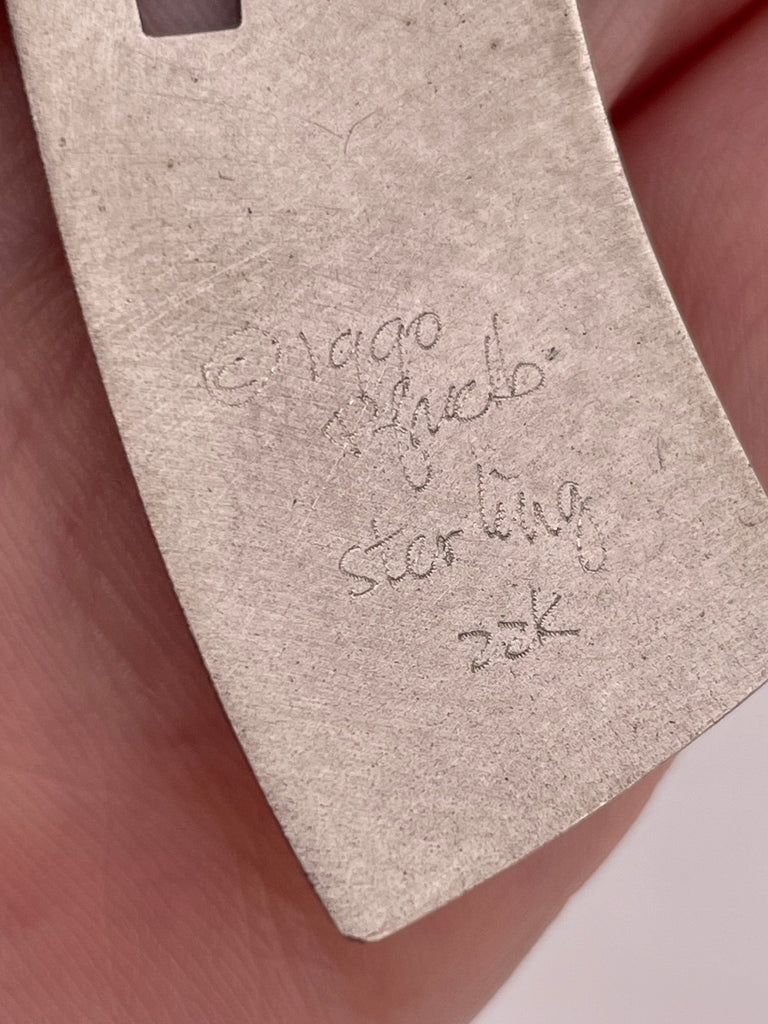 © 1990
sterling
22K